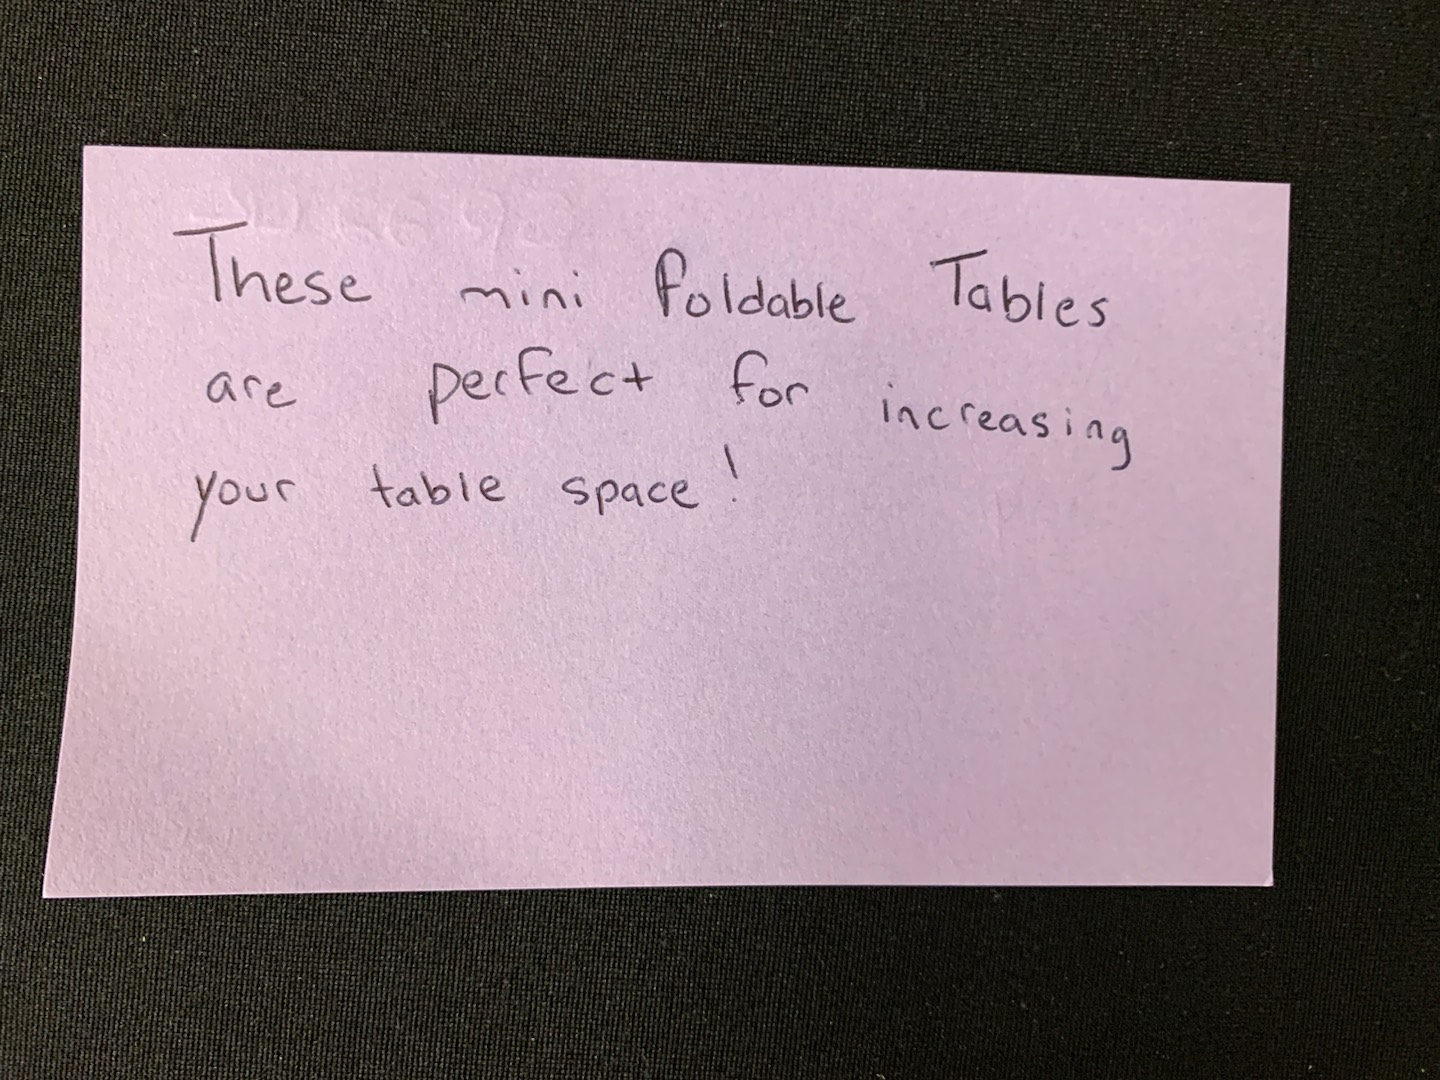 These mini foldable Tables
are perfect for increasing
your table space!